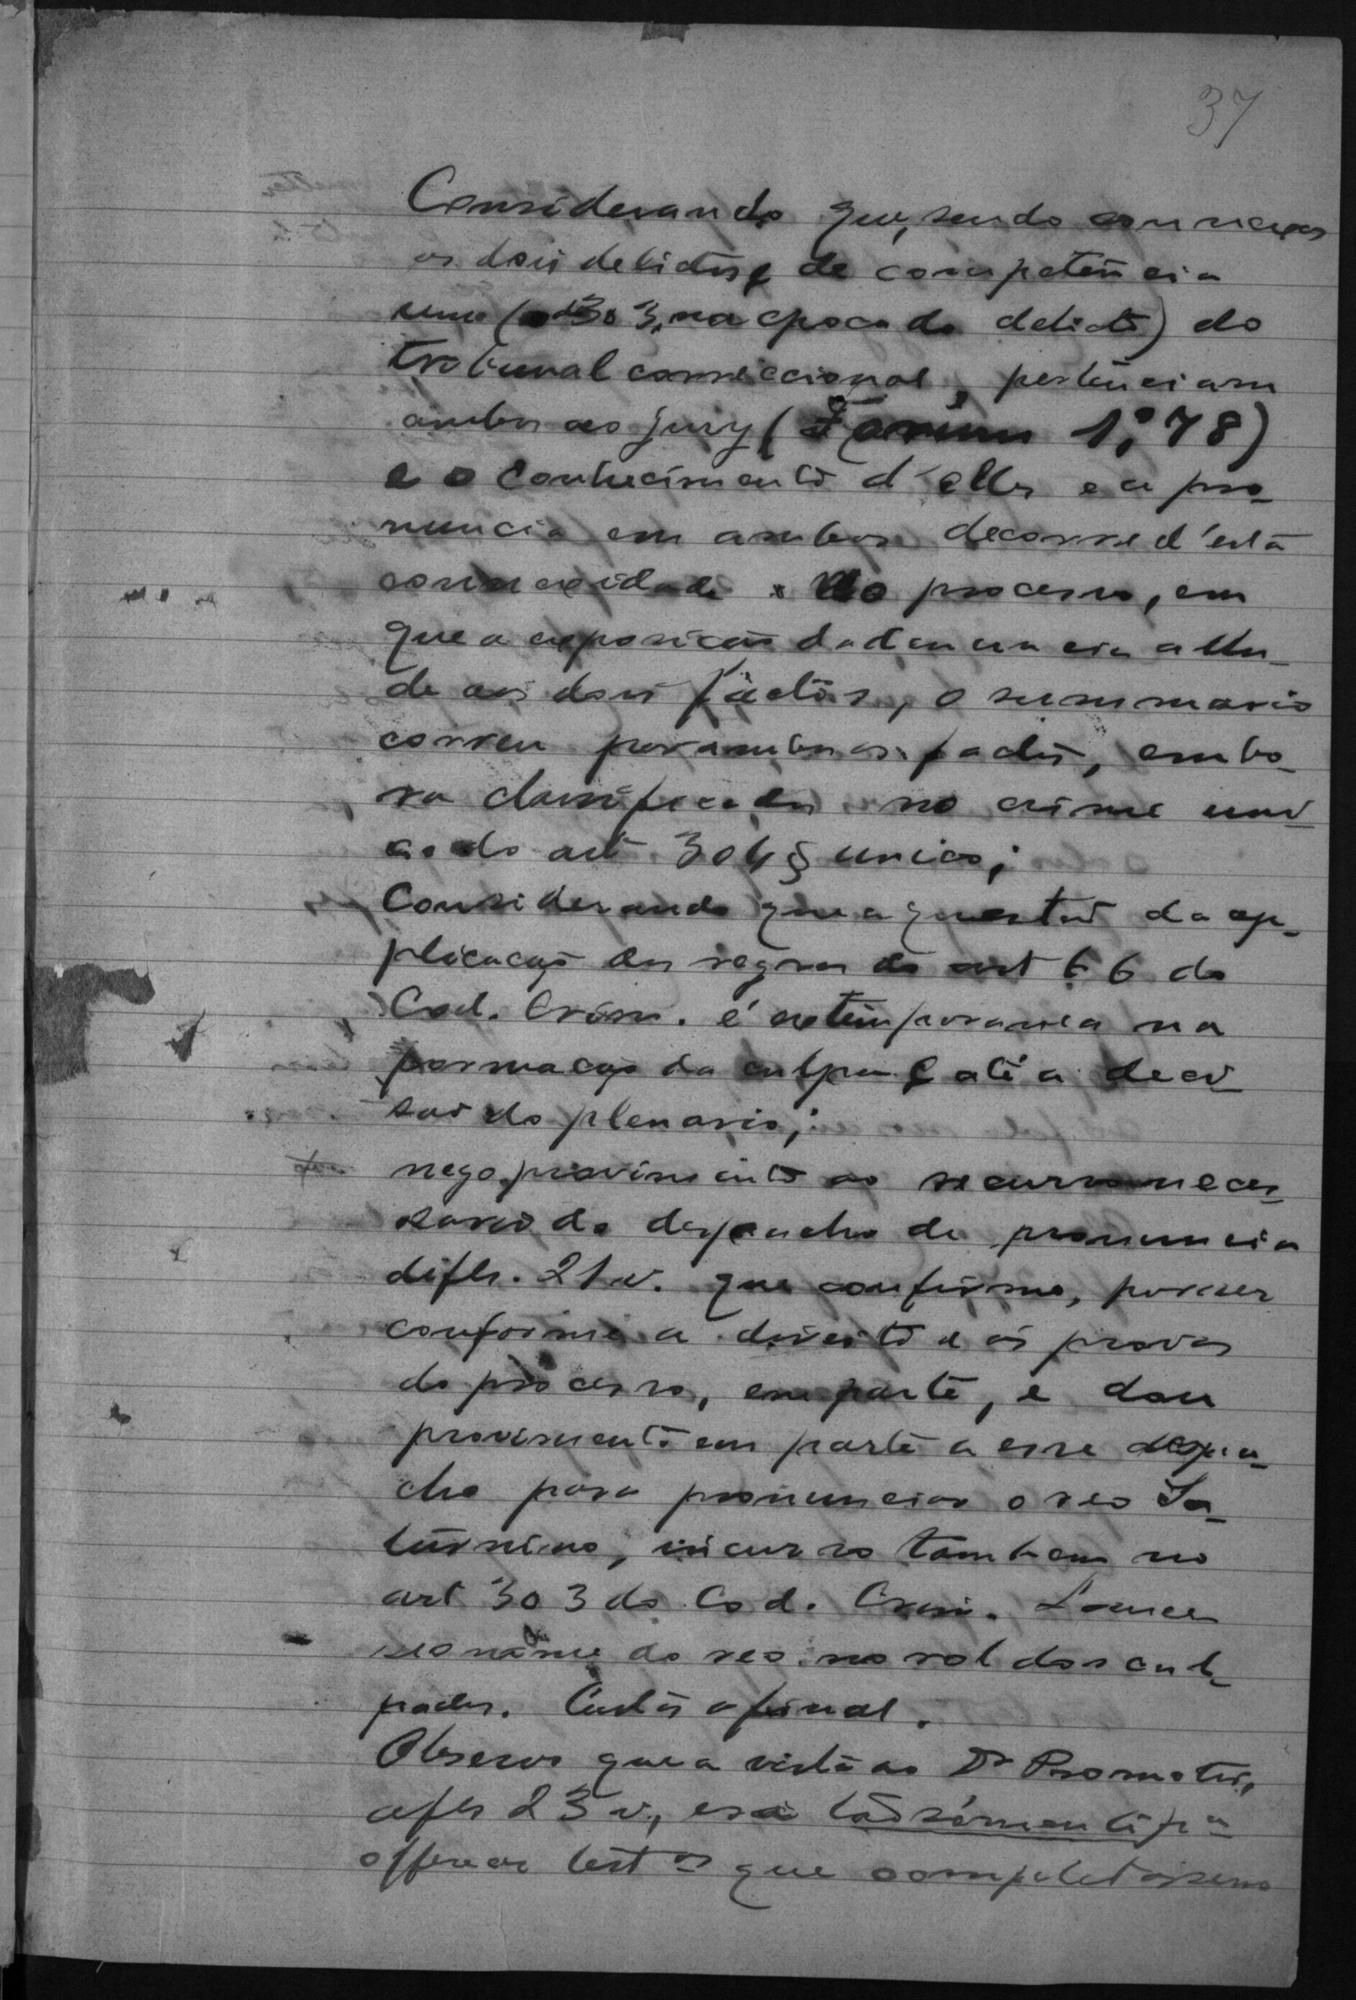 37
Considerando que, sendo connexos
os dois delictos e de competencia
um (o 303, na epoca do delicto) do
tribunal correccional, pertenciam
ambos ao jury ( 1º, 78)
e o conhecimento d'elles e a pro-
nuncia em ambos decorre d'esta
connexidade do processo, em
que a exposição da denuncia allu-
de aos dois factos, o summario
correu por ambos os factos, embo-
ra classificados no crime uni-
co do art 304 § unico;
Considerando que a questão da ap-
plicação das regras do art 66 do
Cod. Crim. é extemporanea na
formação da culpa e até a deci-
são do plenario;
nego provimento ao recurso neces-
sario do despacho de pronuncia
de fls. 21 v. que confirmo, por ser
conforme a direito e ás provas
do processo, em parte, e dou
provimento em parte a esse despa-
cho para pronunciar o reo Sa-
turnino, incurso tambem no
art 303 do Cod. Crim. Lance-
se o nome do reo no rol dos cul-
pados. Custas afinal.
Observo que a vista ao Dr Promotor,
a fls 23 v, era tão sómente pª
offerecer testas que completassem